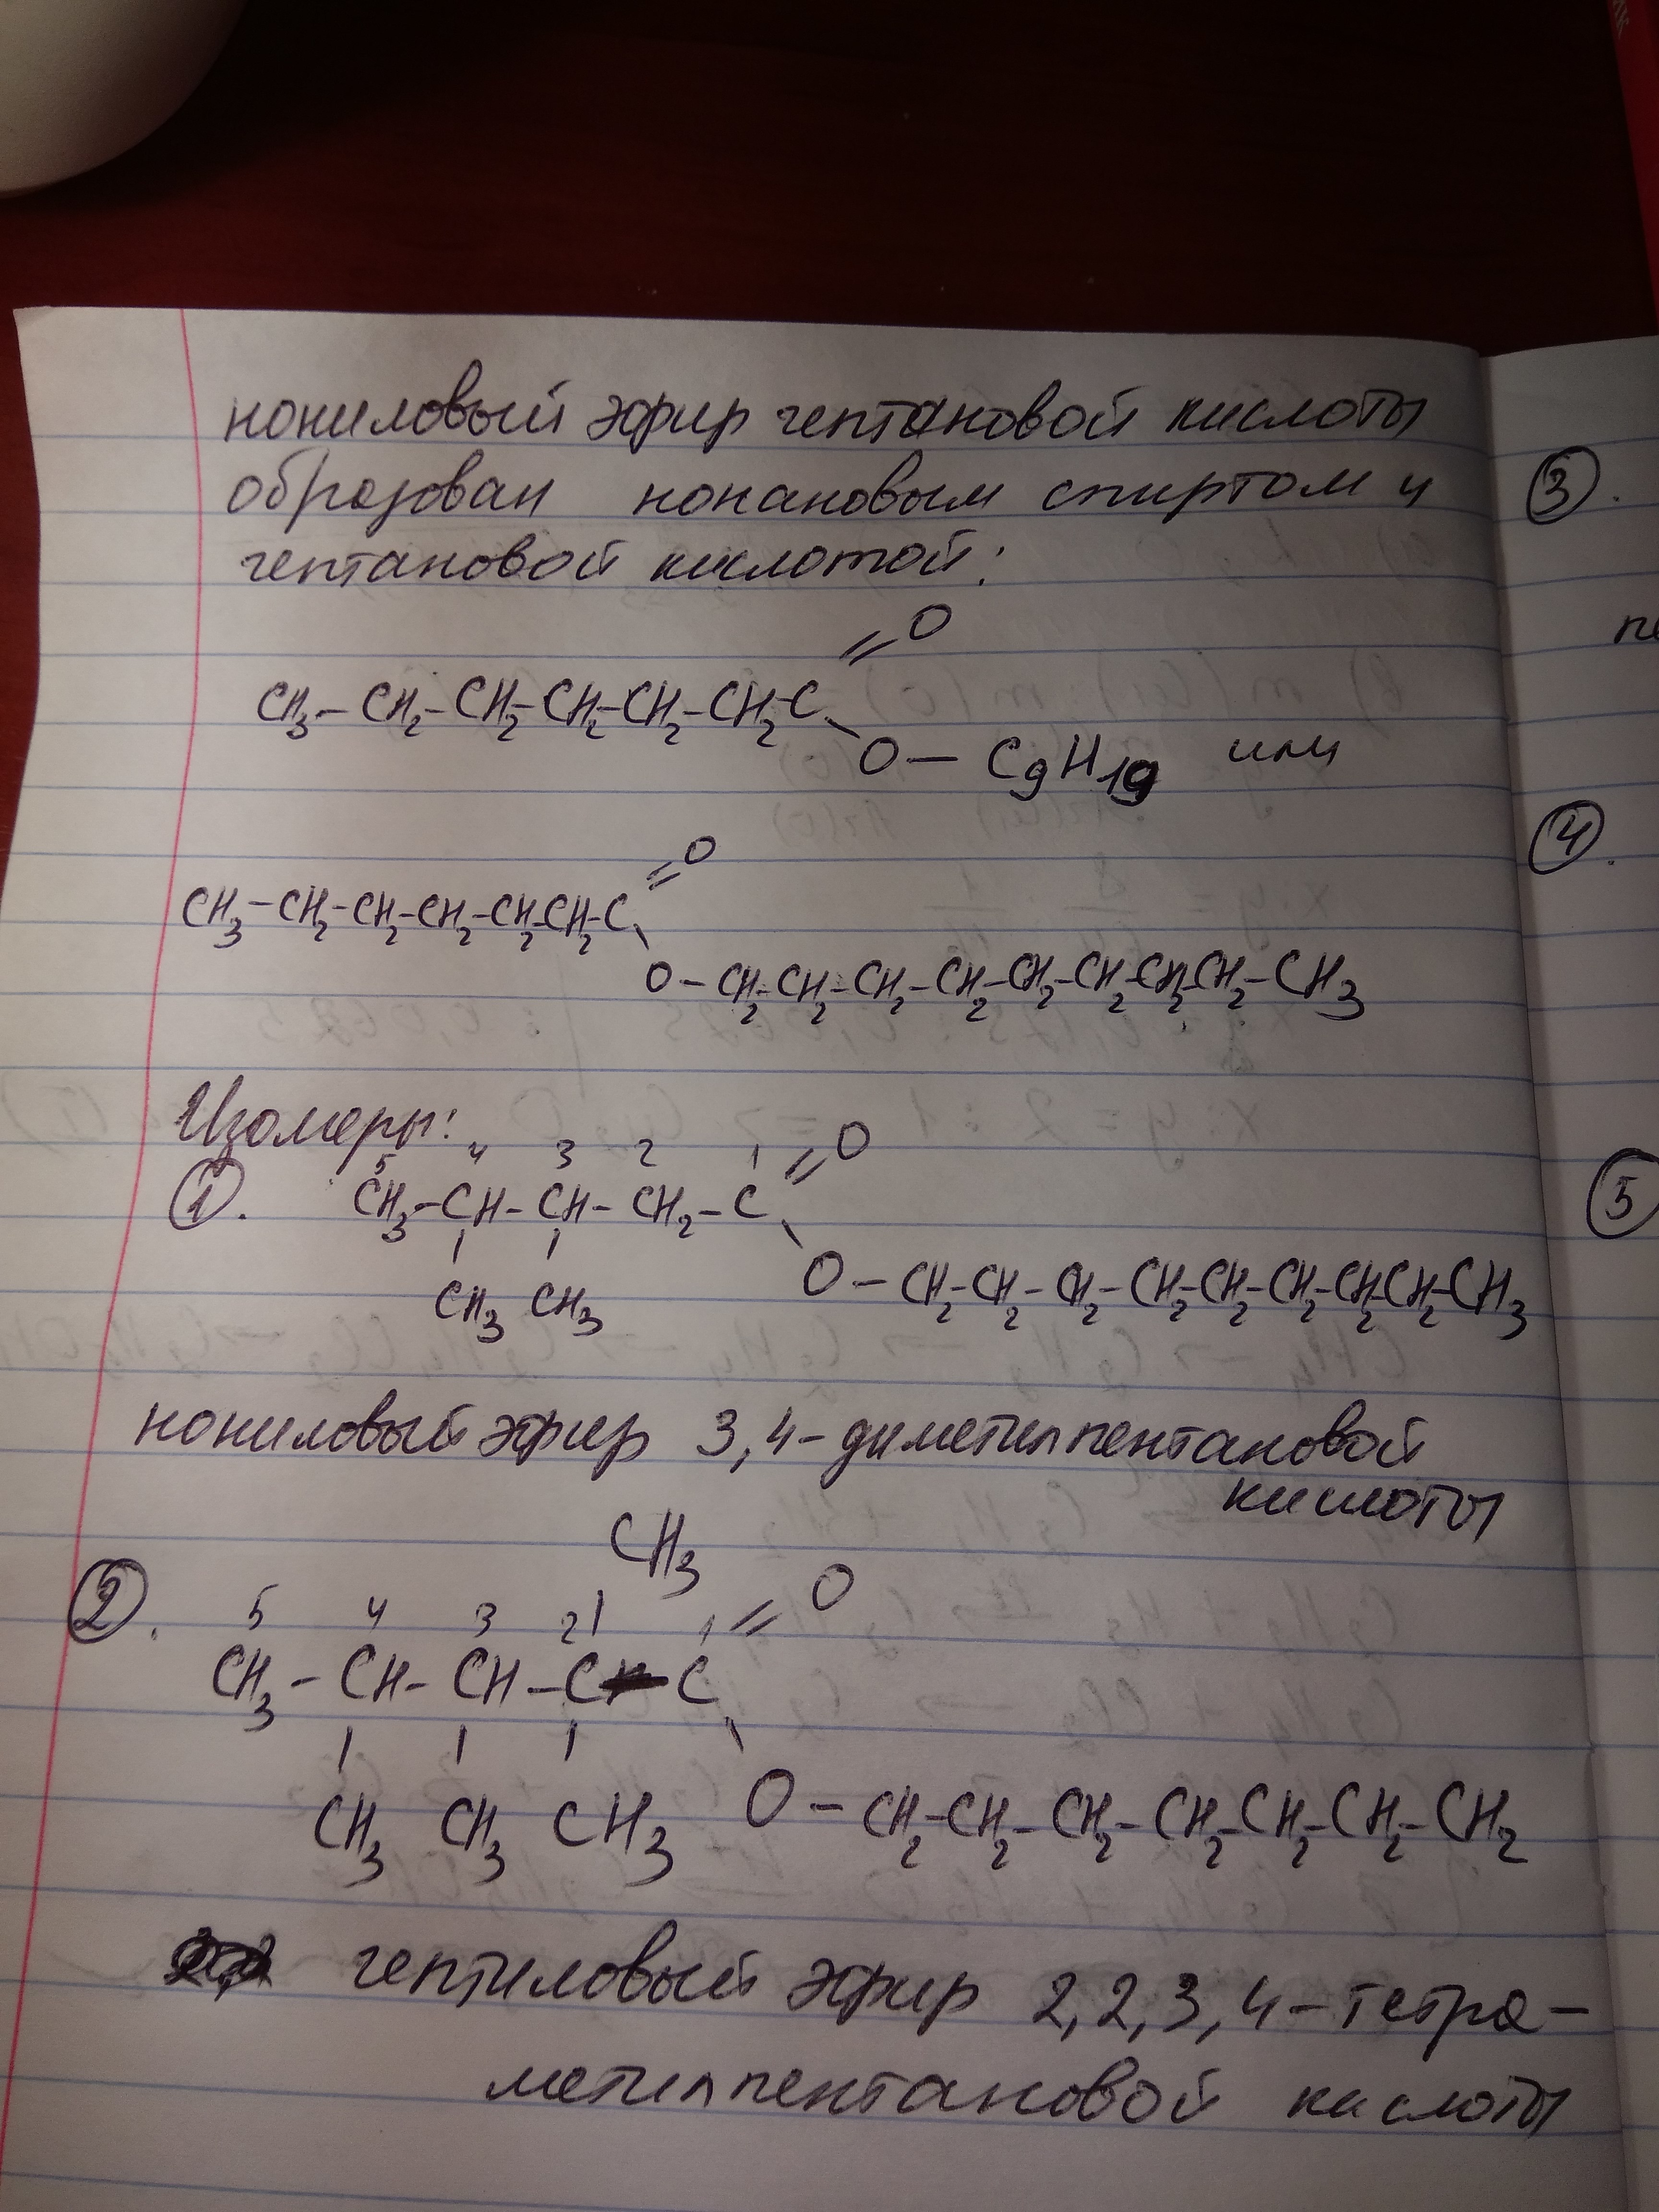 нониловый эфир гептановой кислоты
образован нонановым спиртом и
гептановой кислотой:
O
CH3-CH2-CH2-CH2-CH2-CH2-C
O-C9H19 или
O
CH3-CH2-CH2-CH2-CH2-CH2-C
O-CH2-CH2-CH2-CH2-CH2-CH2-CH2-CH2-CH3
Изомеры:
5 4 3 2 1 O
1. CH3-CH-CH-CH2-C
CH3 CH3
O-CH2-CH2-CH2-CH2-CH2-CH2-CH2-CH2-CH3
нониловый эфир 3,4-диметилпентановой
кислоты
CH3
2. 5 4 3 2 1 O
CH3-CH-CH-C-C
CH3 CH3 CH3
O-CH2-CH2-CH2-CH2-CH2-CH2-CH2
гептиловый эфир 2,2,3,4-тетра-
метилпентановой кислоты
3.
4.
5